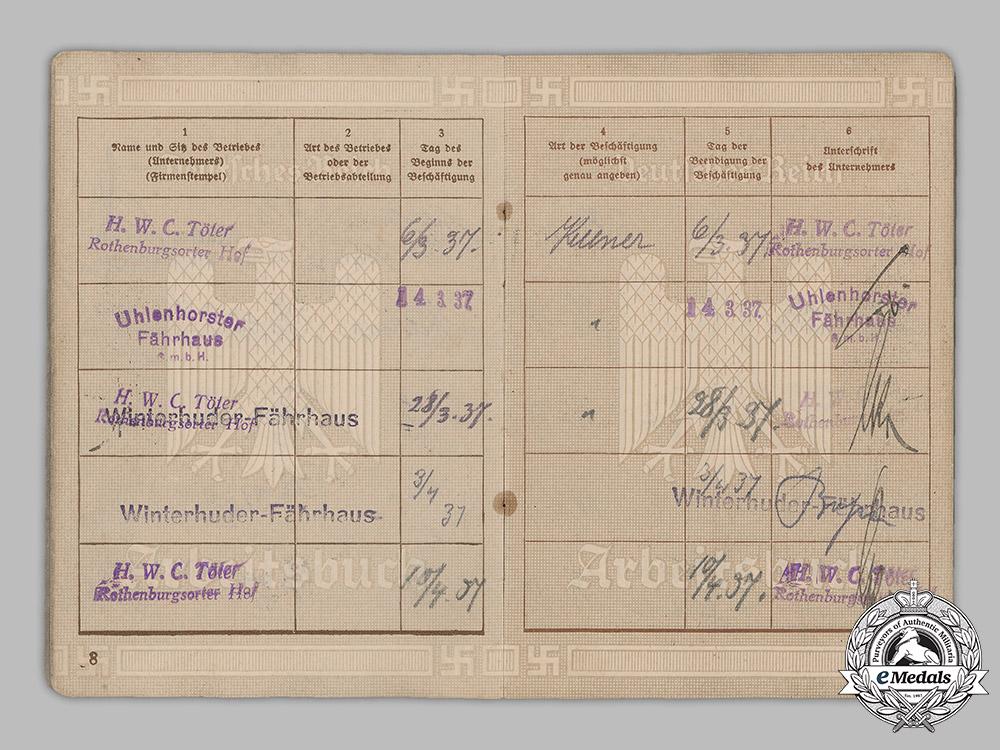 1
Name und Sitz des Betriebes
(Unternehmers)
(Firmenstempel)
2
Art des Betriebes
oder der
Betriebsabteilung
3
Tag des
Beginns der
Beschäftigung
4
Art der Beschäftigung
(möglichst
genau angeben)
5
Tag der
Beendigung der
Beschäftigung
6
Unterschrift
des Unternehmers
Deutsches Reich
Deutsches Reich
H. W. C. Töler
Rothenburgsorter Hof
6/3. 37.
Kellner
6/3. 37.
H. W. C. Töler
Rothenburgsorter Hof
Uhlenhorster
Fährhaus
G.m.b.H.
14. 3. 37.
"
14. 3. 37.
Uhlenhorster
Fährhaus
G.m.b.H.
H. W. C. Töler
Rothenburgsorter Hof
Winterhuder-Fährhaus
28/3. 37.
"
28/3. 37.
H. W.
Rothenburgs
Winterhuder-Fährhaus
3/4
37
3/4 37
Winterhuder-Fährhaus
H. W. C. Töler
Rothenburgsorter Hof
10/4. 37
10/4. 37.
H. W. C. Töler
Rothenburgsorter
Arbeitsbuch
Arbeitsbuch
8
Purveyors of Authentic Militaria
eMedals
Est. 1967